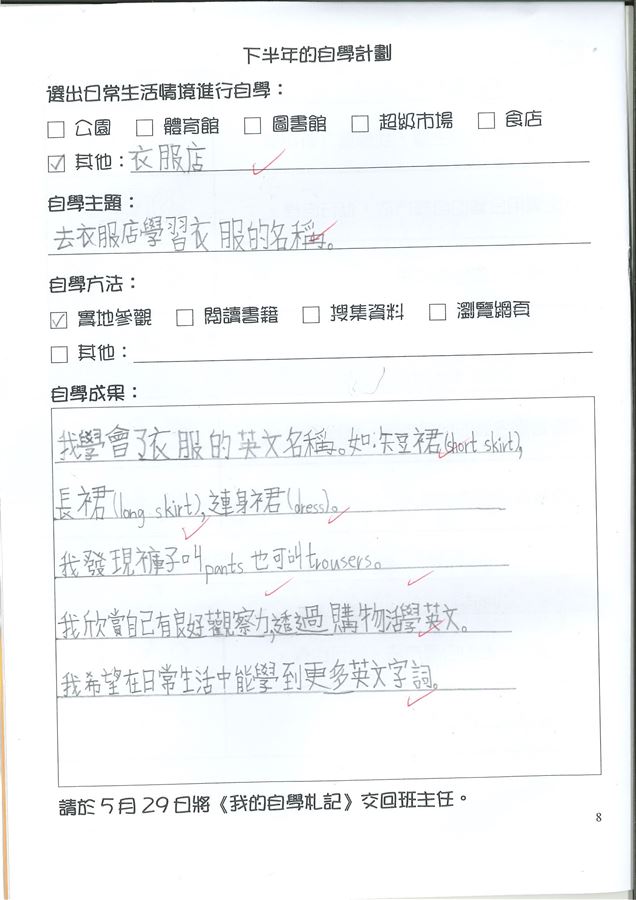 下半年的自學計劃
選出日常生活情境進行自學：
□ 公園 □ 體育館 □ 圖書館 □ 超級市場 □ 食店
☑ 其他：衣服店
自學主題：
去衣服店學習衣服的名稱。
自學方法：
☑ 實地參觀 □ 閱讀書籍 □ 搜集資料 □ 瀏覽網頁
□ 其他：
自學成果：
我學會了衣服的英文名稱。如：短裙(short skirt),
長裙(long skirt),連身裙(dress)。
我發現褲子叫pants也可叫trousers。
我欣賞自己有良好觀察力,透過購物活學英文。
我希望在日常生活中能學到更多英文字詞。
請於5月29日將《我的自學札記》交回班主任。
8